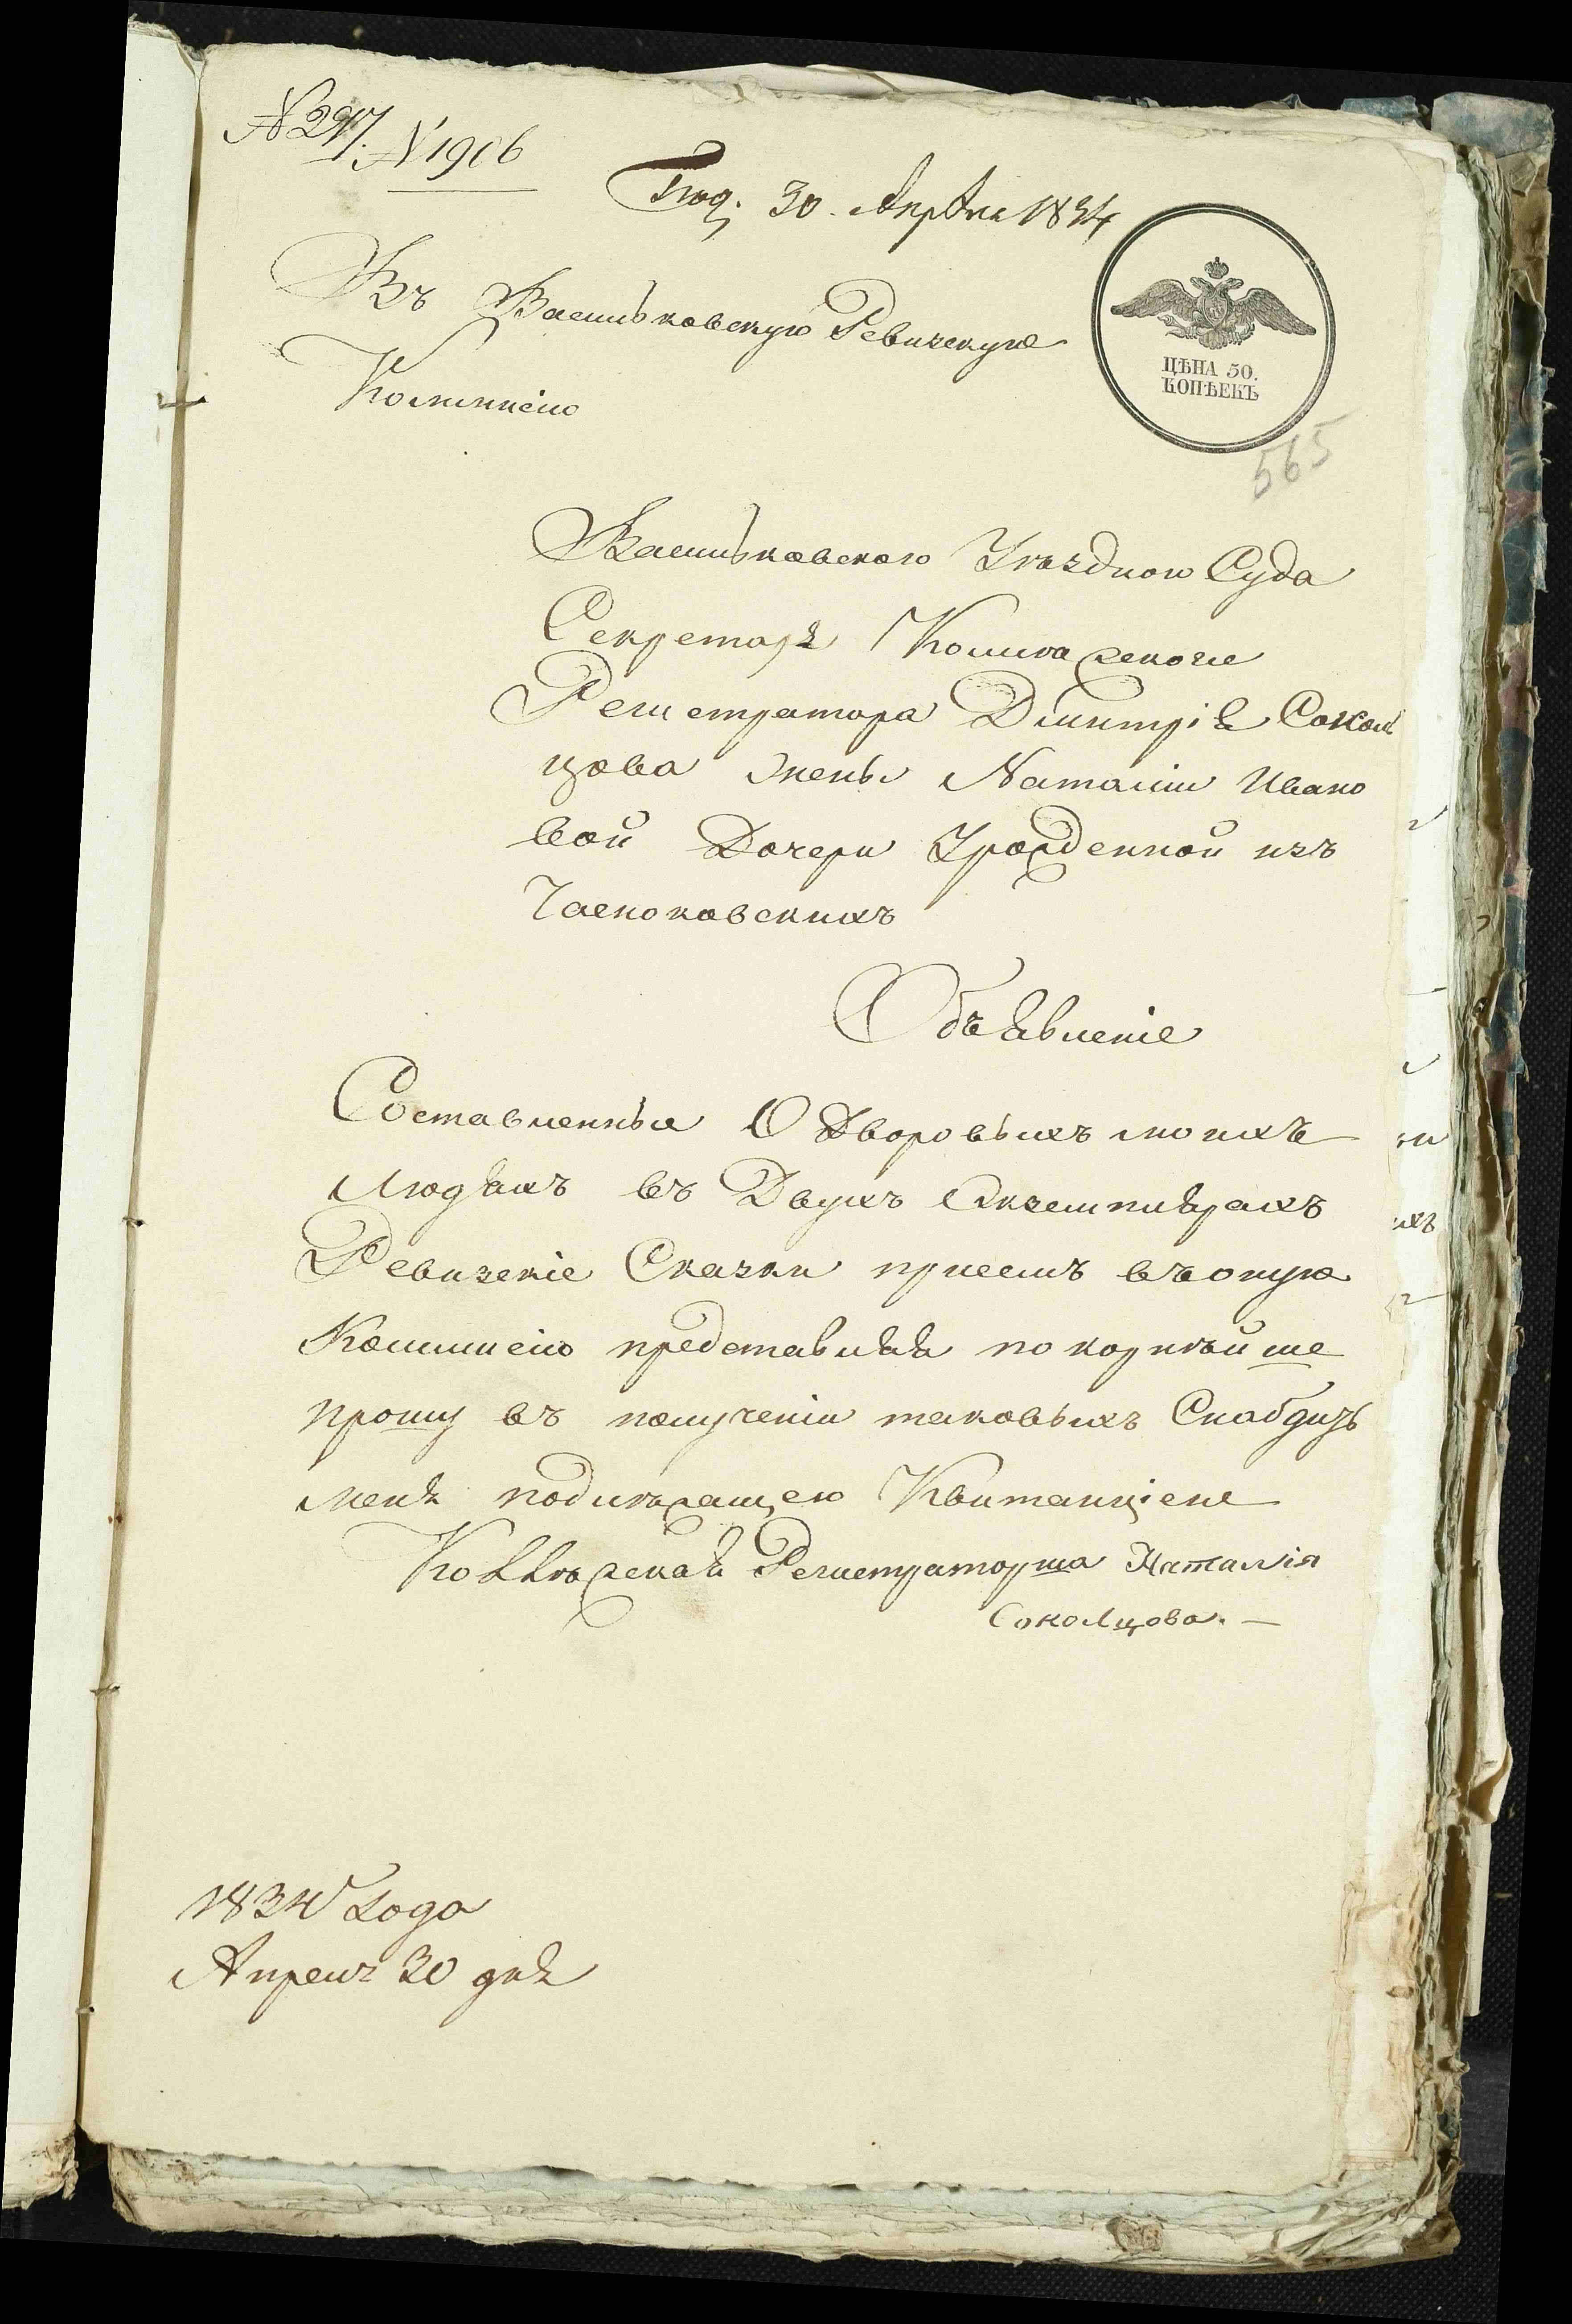 № 297. № 1906
Под. 30. Апрѣля 1834
Въ Васильковскую Ревизскую
Коммисію
ЦѢНА 50.
КОПѢЕКЪ
565
Васильковскаго Уѣзднаго Суда
Секретаря Колежскаго
Регистратора Дмитрія Соколь
цова жены Наталіи Ивано
вой Дочери Урожденной изъ
Объявленіе
Составленныя О Дворовыхъ моихъ
Людяхъ въ Двухъ Екземплярахъ
Ревизскіе Сказки присемъ въ оную
Коммисію представляя покорнѣйше
прошу въ полученіи таковыхъ Снабдить
меня подлежащею Квитанціею
Коллежская Регистраторша Наталія
Соколцова. —
1834 Года
Апреля 30 дня